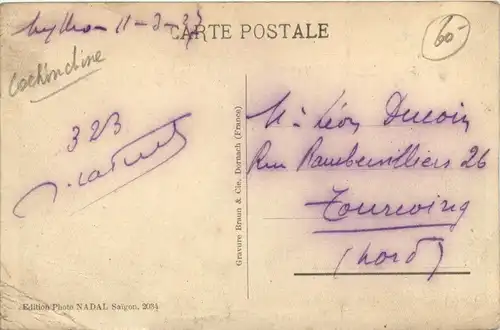 11-3-37
CARTE POSTALE
60-
Cochinchine
323
Mr Léon Ducoin
Rue Rambervilliers 26
Tourcoing
(Nord)
Gravure Braun & Cie, Dornach (France)
Edition Photo NADAL Saigon, 2034